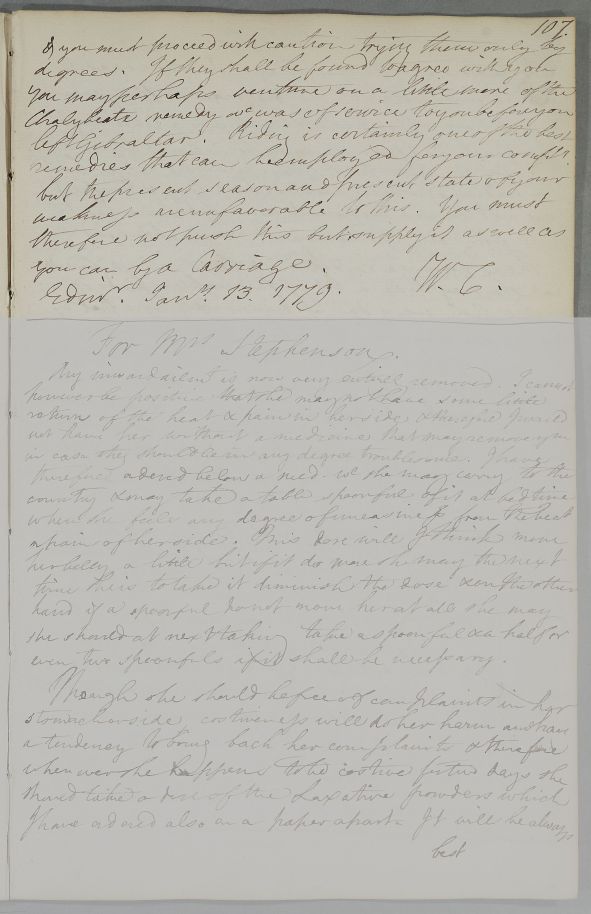 107
& you must proceed with caution trying them only by
degrees. If they shall be found to agree with you
you may perhaps venture on a little more of the
Chalybeate remedy wc was of service to you before you
left Gibraltar. Riding is certainly one of the best
remedies that can be employed for your
but the present season and present state of your
weakness are unfavorable to this. You must
therefore not push this but supply it as well as
you can by a Carriage.
Edinr. Jany. 13. 1779. W. C.
For Mrs Stephenson.
Any inward ailment is now very entirely removed. I cannot
however be positive that she may not have some little
return of the heat & pain in her side & therefore I would
not have her without a medicine that may remove
in case they should be in any degree troublesome. I have
therefore ordered below a med. wc she may carry to the
country & may take a table spoonful of it at bed time
when she feels any degree of uneasiness from the heat
or pain of her side. This dose will I think move
her belly a little but if it do more she may the next
time she is to take it diminish the dose & on the other
hand if a spoonful do not move her at all she may
she should at next taking take a spoonful & a half or
even two spoonfuls if it shall be necessary.
Though she should be free of complaints in her
stomach or side, costiveness will do her harm and have
a tendency to bring back her complaints & therefore
whenever she happens to be costive for two days she
should take a dose of the Laxative powders which
I have ordered also on a paper apart. It will be always
best